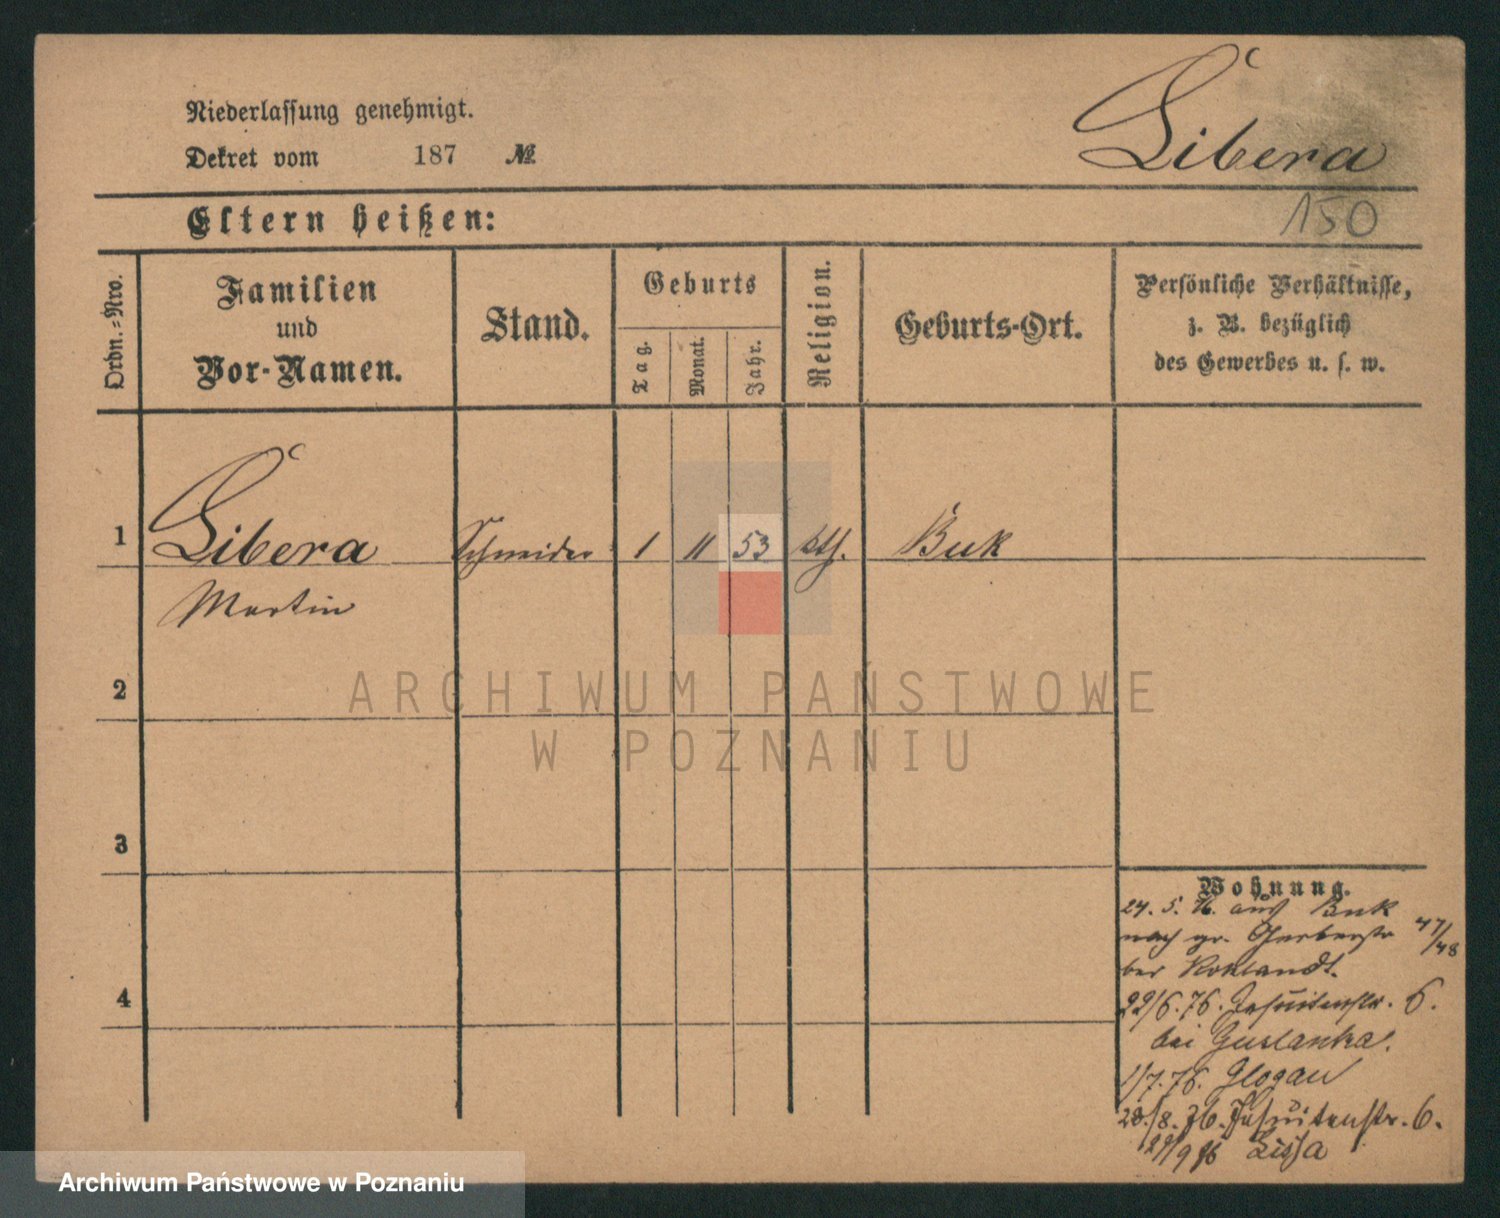 Libera
Niederlassung genehmigt.
Dekret vom 187 №
150
Eltern heißen:
Ordn.-Nro.
Familien
und
Vor-Namen.
Stand.
Geburts
Tag.
Monat.
Jahr.
Religion.
Geburts-Ort.
Persönliche Verhältnisse,
z. B. bezüglich
des Gewerbes u. s. w.
1 Libera Schneider 1 11 53 kth. Buk
Martin
2
3
4
Wohnung.
24. 5. 76. aus Buk
nach gr. Gerberstr 47/48
22/6. 76. Jesuitenstr. 6.
bei
1/7. 76. Glogau
28./8. 76. Jesuitenstr. 6.
29/9 76 Lissa
ARCHIWUM PAŃSTWOWE
W POZNANIU
Archiwum Państwowe w Poznaniu